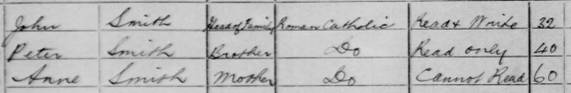 John Smith Head of Family Roman Catholic Read & Write 32
Peter Smith Brother Do Read only 40
Anne Smith Mother Do Cannot Read 60